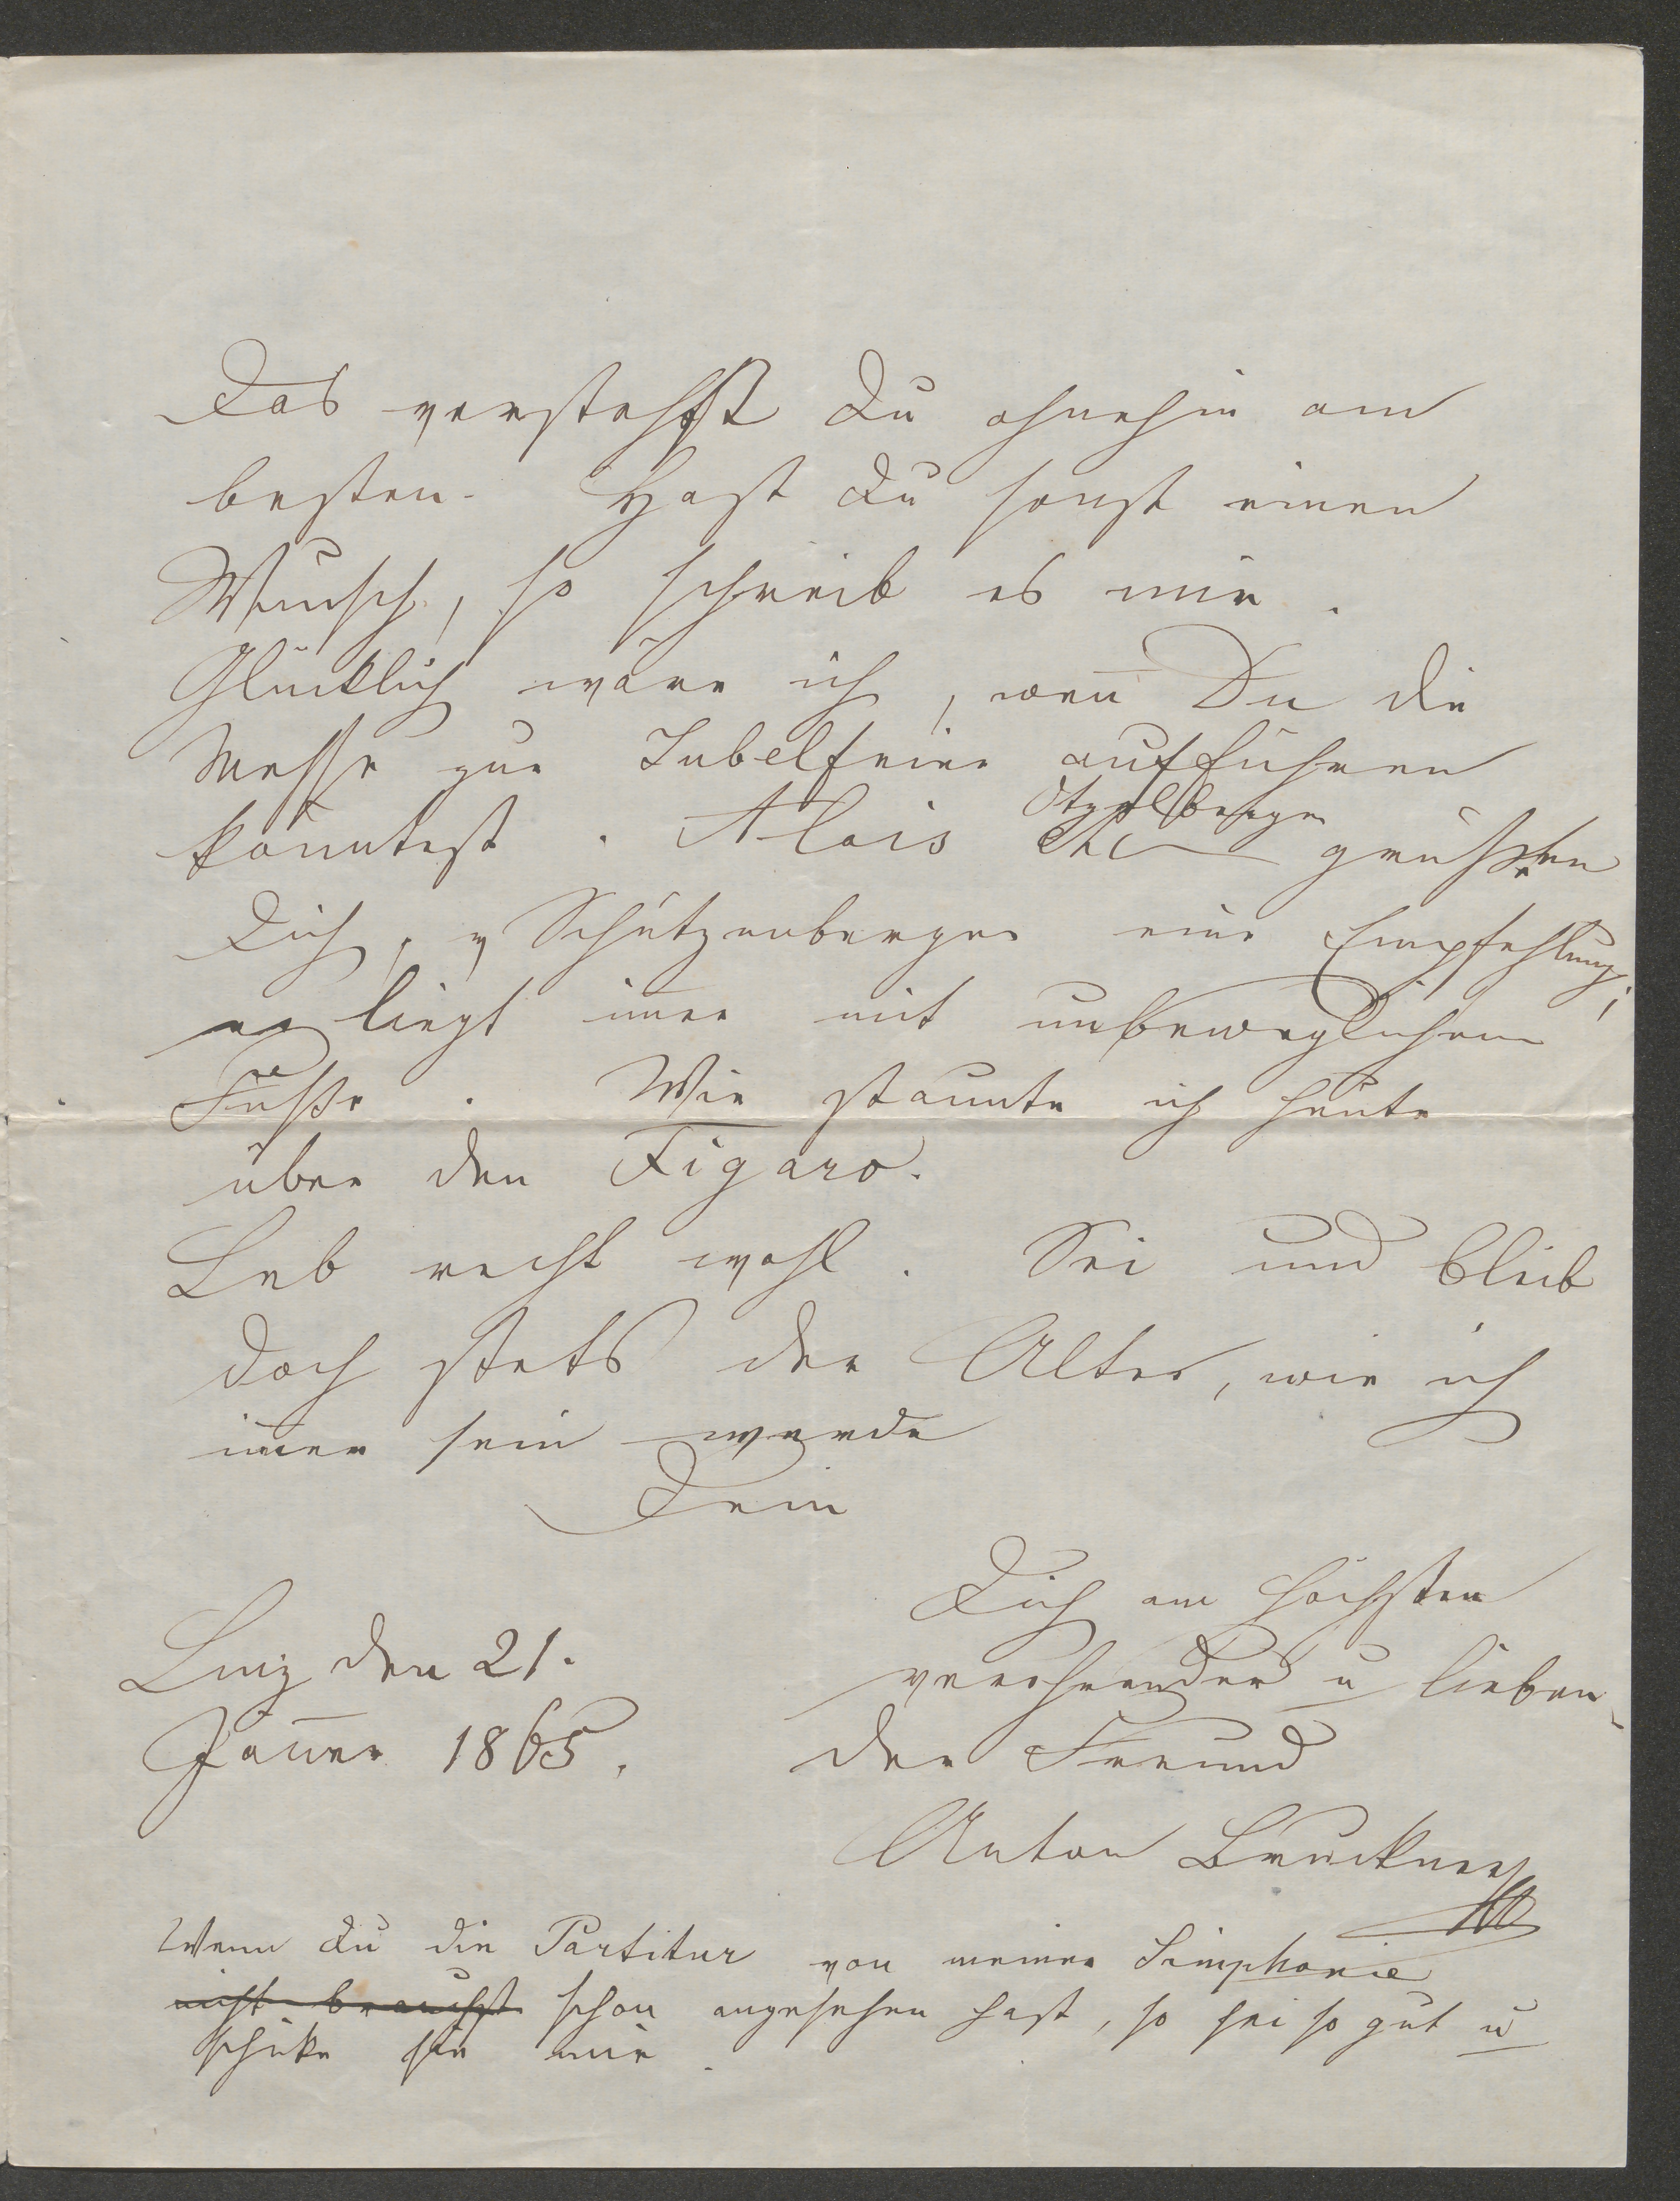 Das verstehst Du ohnehin am
besten. Hast Du sonst einen
Wunsch, so schreib es mir.
Glücklich wäre ich, weñ Du die
Messe zur Jubelfeier aufführen
könntest. Alois
Stzlberger
etc grüßen
Dich, v Schützenberger eine Empfehlung;
er liegt im̅er mit unbeweglichem
Fuße. Wie staunte ich heute
über den Figaro.
Leb recht wohl. Sei und bleib
doch stets der Alte, wie ich
im̅er sein werde
Dein
Dich am höchsten
verehrender u lieben-
der Freund
Linz den 21.
Jäner 1865.
Anton Bruckner
Wenn Du die Partitur von meiner Simphonie
nicht brauchst schon angesehen hast, so sei so gut u
schicke sie mir.